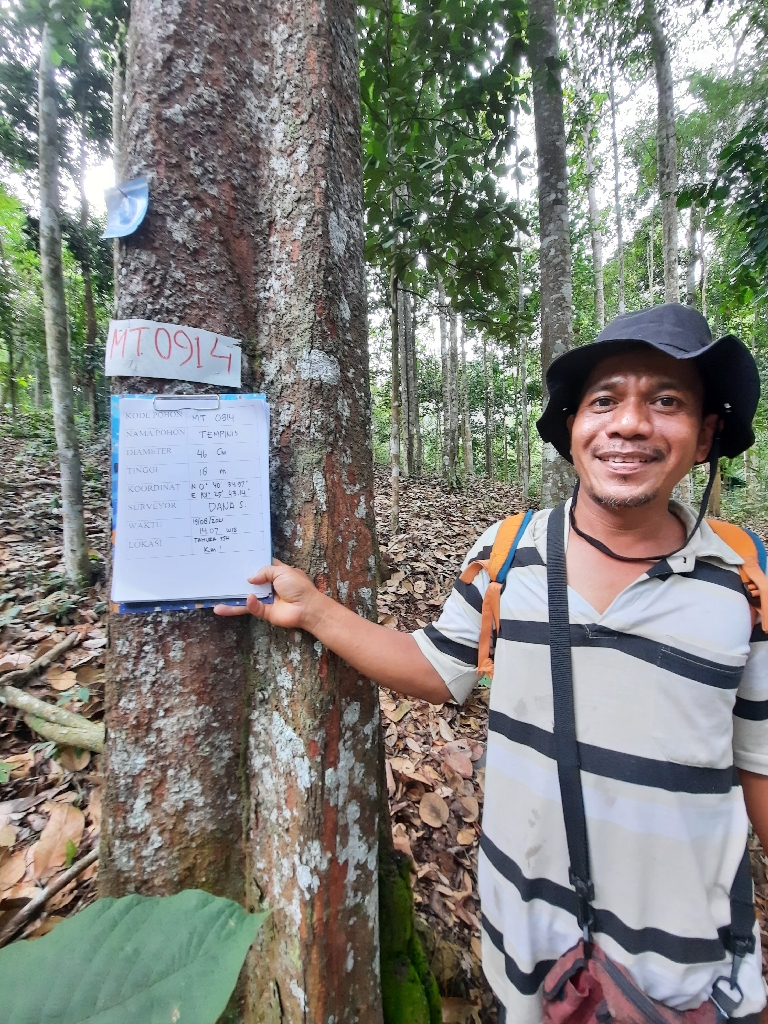 MT 0914
KODE POHON MT 0914
NAMA POHON TEMPINIS
DIAMETER 46 Cm
TINGGI 18 m
KOORDINAT N 0° 40'
SURVEYOR DANA S
WAKTU 14.07 WIB
LOKASI TAHURA SSH
Km 1